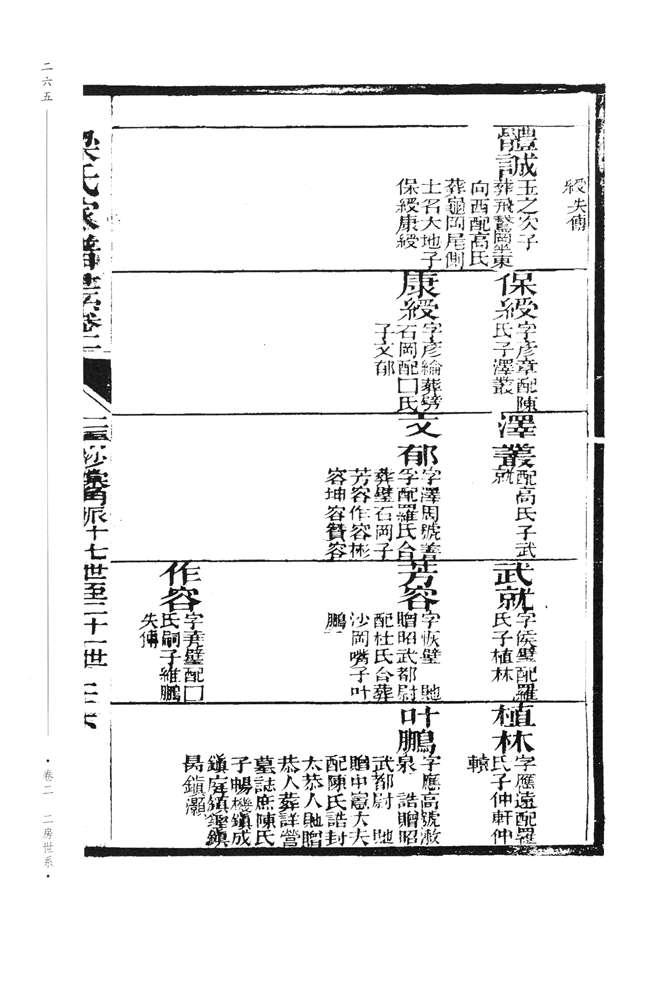 二六五
卷二　二房世系
梁氏家譜
卷二
派十七世至二十一世
綬失傳
體誠
玉之次子
向西配高氏
葬龜岡尾側
土名大地子
保綬康綬
保綬
字彦章配陳
氏子澤叢
康綬
字彦綸葬劈
石岡配囗氏
子文郁
澤叢
配高氏子武
就
文郁
字澤周號善
孚配羅氏合
葬壁石岡子
芳容作容彬
容坤容賛容
武就
字侯璧配羅
氏子植林
芳容
字恢璧　貤
贈昭武都尉
配杜氏合葬
沙岡嘴子叶
鵬
作容
字弄璧配囗
氏嗣子維鵬
失傳
植林
字應遠配羅
氏子仲軒仲
轅
叶鵬
字應高號漖
泉　誥贈昭
武都尉　貤
贈中憲大夫
配陳氏誥封
太恭人貤贈
恭人葬詳營
墓誌庶陳氏
子暢機鎮成
鎮㝎鎮鏗鎮
昜鎮灝